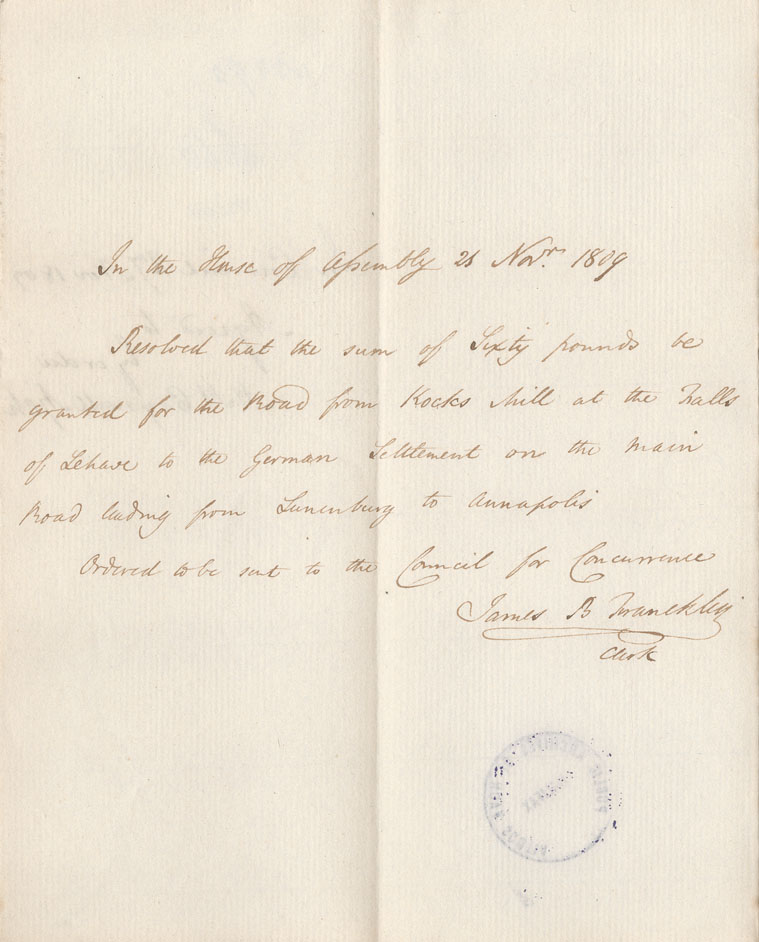 In the House of Assembly 21 Novr. 1809
Resolved that the sum of Sixty pounds be
granted for the Road from Kocks Mill at the Falls
of Lehave to the German Settlement on the main
Road leading from Lunenburg to Annapolis
Ordered to be sent to the Council for Concurrence
James B Francklin
Clerk